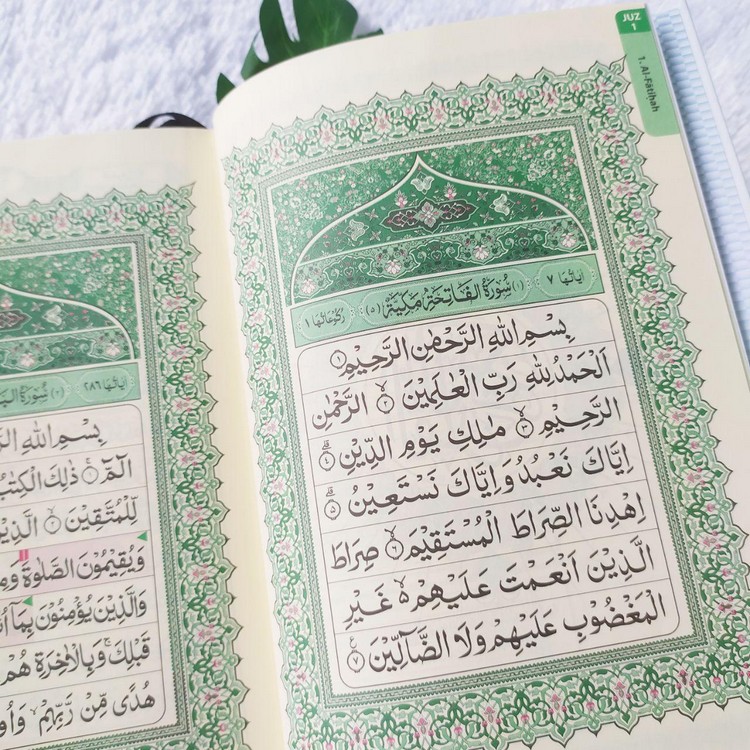 JUZ
1
1. Al-Fātiḥah
اٰيَاتُهَا ٧ (١) سُوْرَةُ الْفَاتِحَةِ مَكِّيَّةٌ (٥) رُكُوْعَاتُهَا ١
بِسْمِ اللّٰهِ الرَّحْمٰنِ الرَّحِيْمِ ١
اَلْحَمْدُ لِلّٰهِ رَبِّ الْعٰلَمِيْنَۙ ٢ الرَّحْمٰنِ
الرَّحِيْمِۙ ٣ مٰلِكِ يَوْمِ الدِّيْنِۗ ٤
اِيَّاكَ نَعْبُدُ وَاِيَّاكَ نَسْتَعِيْنُۗ ٥
اِهْدِنَا الصِّرَاطَ الْمُسْتَقِيْمَۙ ٦ صِرَاطَ
الَّذِيْنَ اَنْعَمْتَ عَلَيْهِمْ ەۙ غَيْرِ
الْمَغْضُوْبِ عَلَيْهِمْ وَلَا الضَّاۤلِّيْنَ ࣖ ٧
اٰيَاتُهَا ٢٨٦ سُوْرَةُ
بِسْمِ اللّٰهِ
الۤمّۤۚ ١ ذٰلِكَ الْكِتٰبُ
لِّلْمُتَّقِيْنَۙ ٢ الَّذِيْنَ
وَيُقِيْمُوْنَ الصَّلٰوةَ
وَالَّذِيْنَ يُؤْمِنُوْنَ بِمَآ
قَبْلِكَۚ وَبِالْاٰخِرَةِ هُمْ
هُدًى مِّنْ رَّبِّهِمْۙ